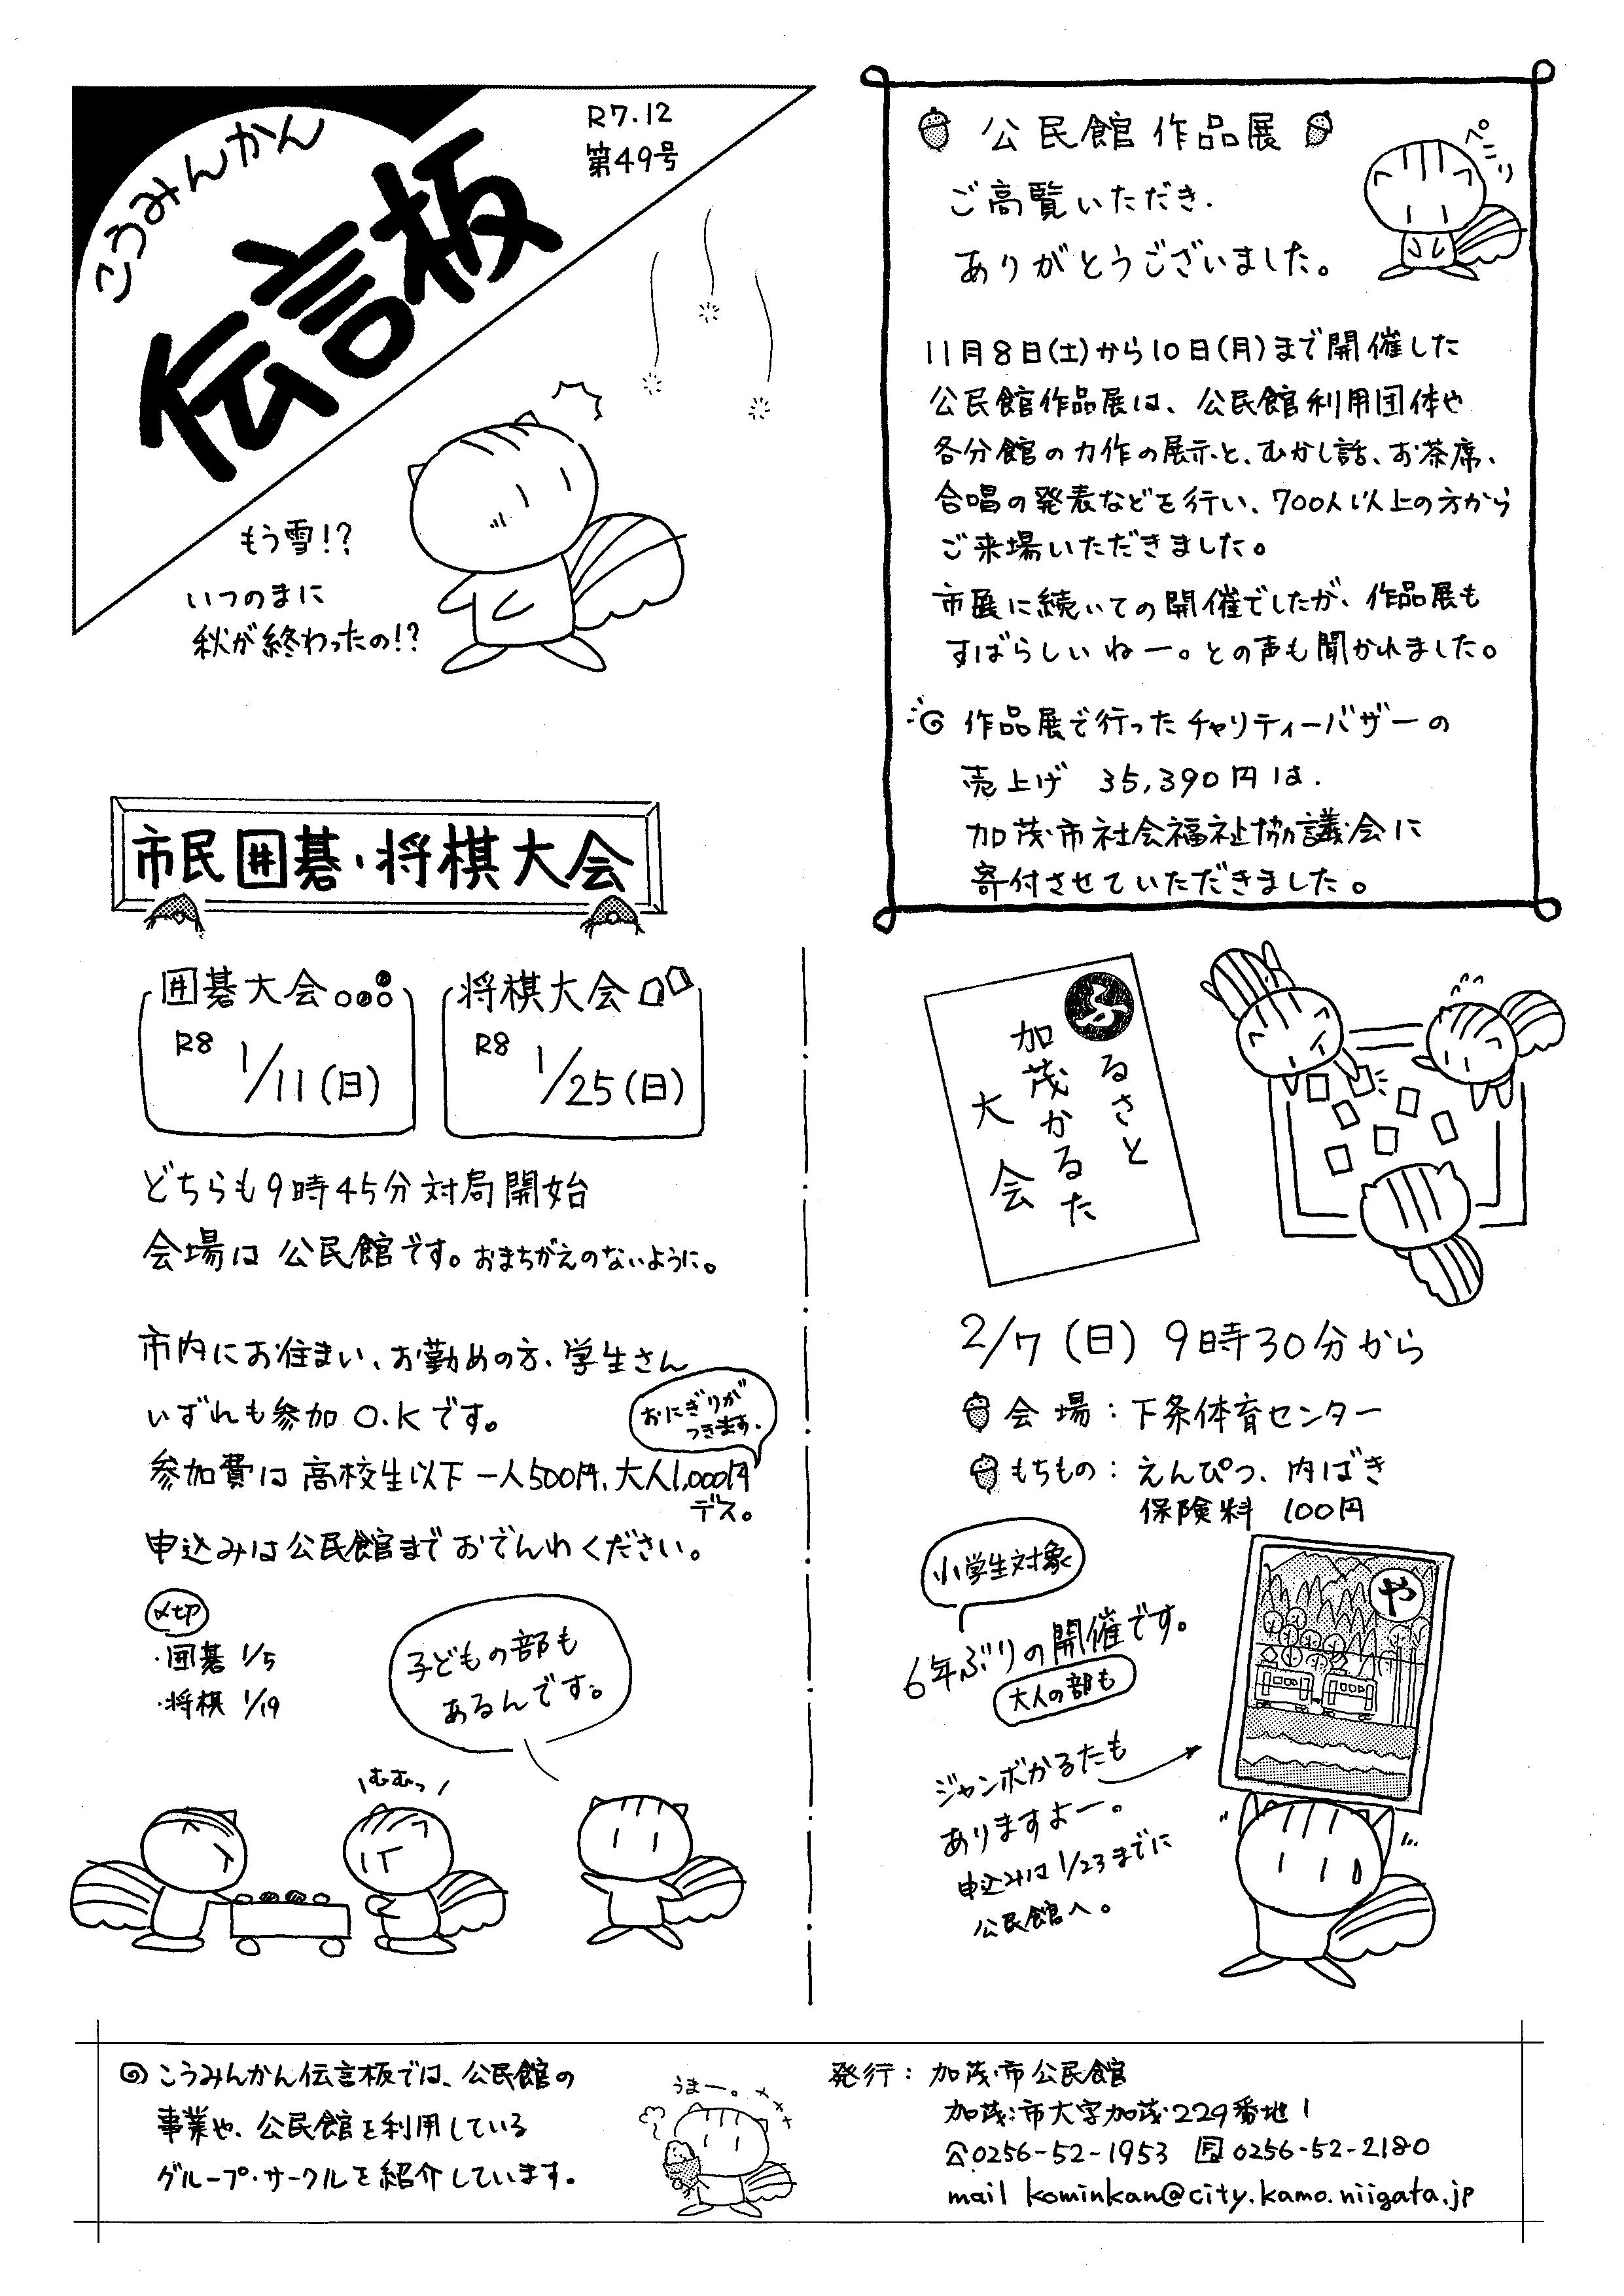 こうみんかん
伝言板
R7.12
第49号
もう雪!?
いつのまに
秋が終わったの!?
公民館作品展
ペこり
ご高覧いただき、
ありがとうございました。
11月8日(土)から10日(月)まで開催した
公民館作品展は、公民館利用団体や
各分館の力作の展示と、むかし話、お茶席、
合唱の発表などを行い、700人以上の方から
ご来場いただきました。
市展に続いての開催でしたが、作品展も
すばらしいねー。との声も聞かれました。
作品展で行ったチャリティーバザーの
売上げ 35,390円は、
加茂市社会福祉協議会に
寄付させていただきました。
市民囲碁・将棋大会
囲碁大会
R8 1/11(日)
将棋大会
R8 1/25(日)
どちらも9時45分対局開始
会場は公民館です。おまちがえのないように。
市内にお住まい、お勤めの方、学生さん
いずれも参加O.Kです。
おにぎりが
つきます。
参加費は高校生以下一人500円、大人1,000円
デス。
申込みは公民館までおでんわください。
〆切
・囲碁 1/5
・将棋 1/19
子どもの部も
あるんです。
むむっ
ふるさと
加茂かるた
大会
2/7(日) 9時30分から
会場:下条体育センター
もちもの:えんぴつ、内ばき
保険料 100円
小学生対象
6年ぶりの開催です。
大人の部も
や
ジャンボかるたも
ありますよー。
申込みは1/23までに
公民館へ。
こうみんかん伝言板では、公民館の
事業や、公民館を利用している
グループ・サークルを紹介しています。
うまー。
発行:加茂市公民館
加茂市大字加茂229番地1
☎0256-52-1953 FAX0256-52-2180
mail kominkan@city.kamo.niigata.jp